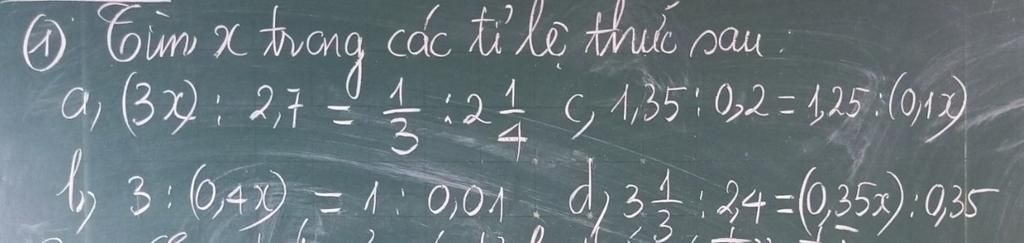 ① Tìm x trong các tỉ lệ thức sau:
a, (3x) : 2,7 = 1/3 : 2 1/4 c, 1,35 : 0,2 = 1,25 : (0,1x)
b, 3 : (0,4x) = 1 : 0,01 d, 3 1/3 : 2,4 = (0,35x) : 0,35